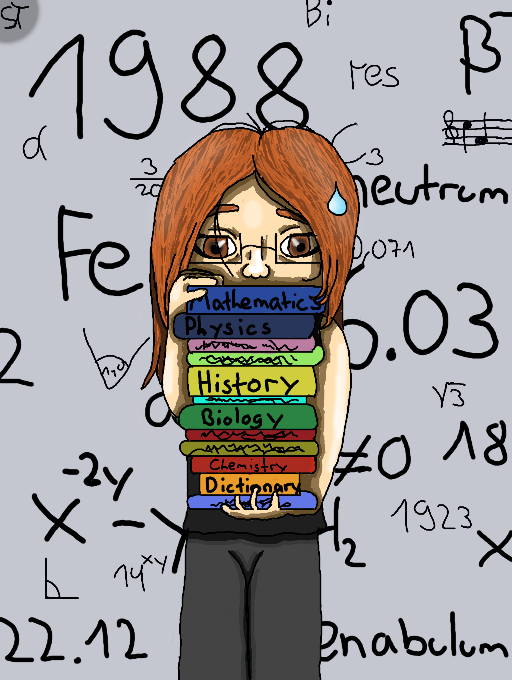 ST
Bi
1988
res
β⁻
α
3
20
3
neutrum
Fe
0,071
Mathematics
Physics
0.03
2
History
√3
Biology
18
≠0
-2y
Chemistry
x-y
Dictionary
1923
2
x
14^xy
22.12
enabulum